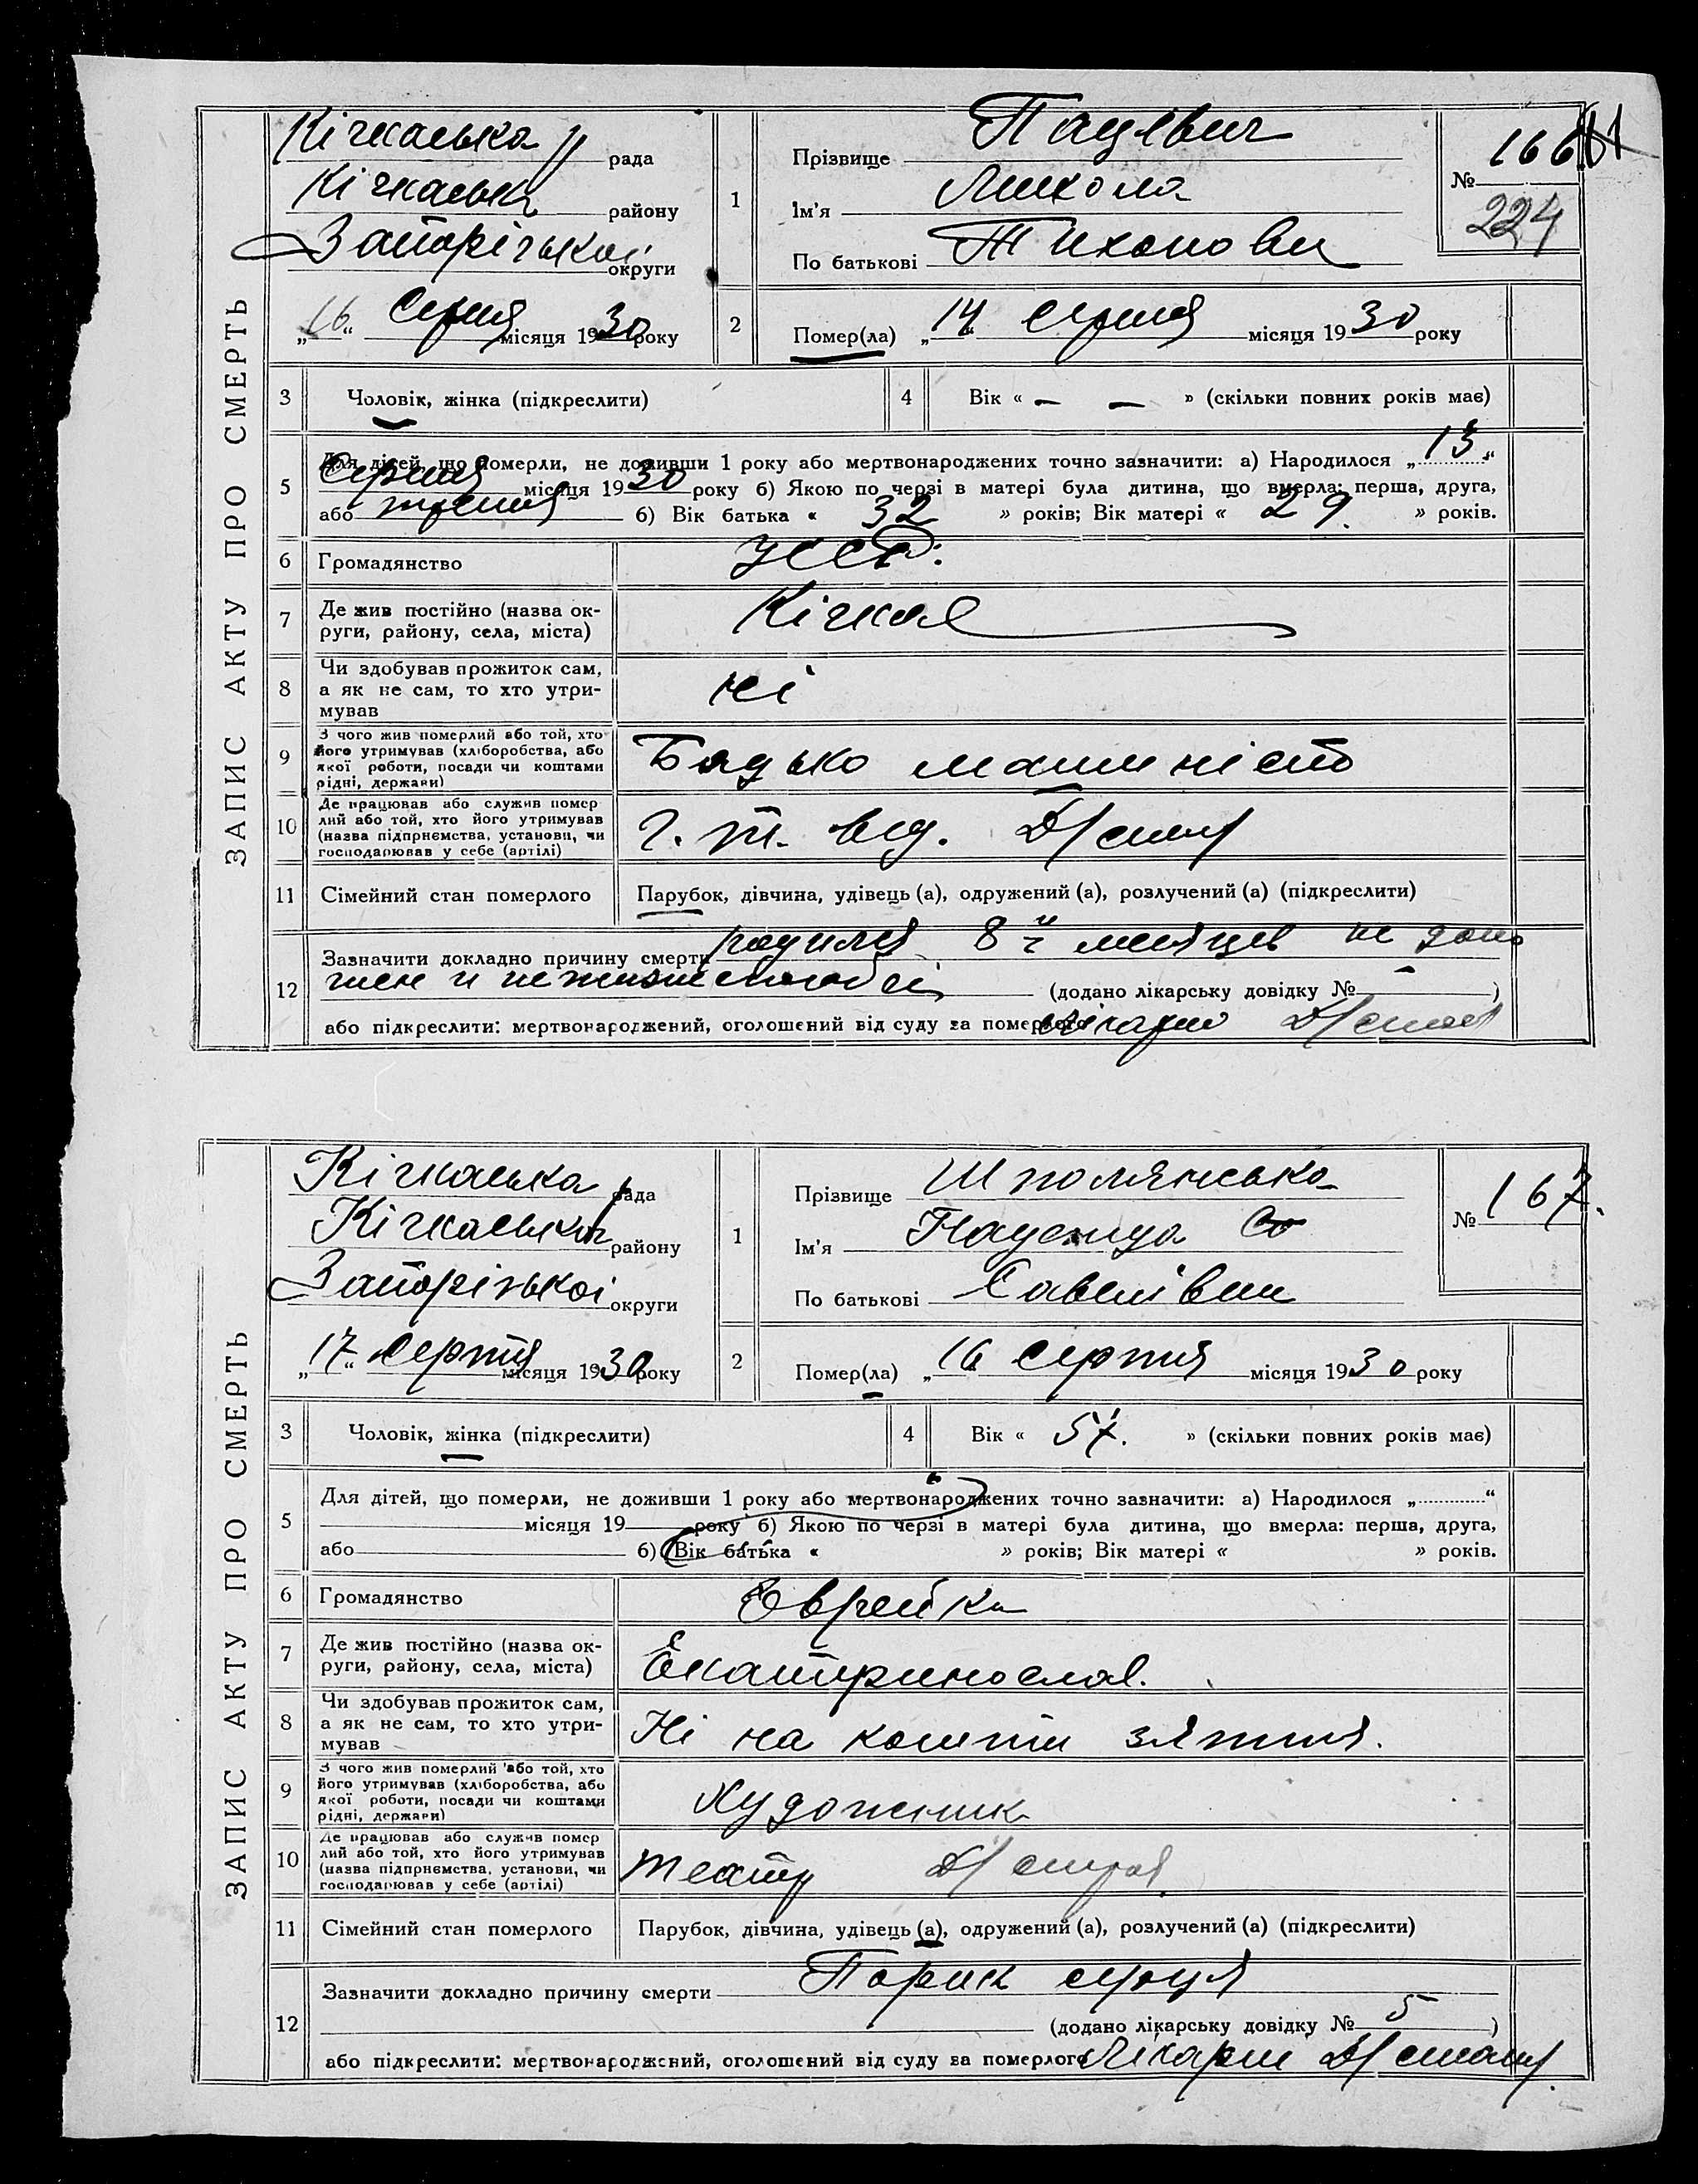 ЗАПИС АКТУ ПРО СМЕРТЬ
Кічкаська рада
Кічкаськ району
Запорізької округи
„16“ Серпня місяця 1930 року
1
Прізвище Пацевич
Ім'я Микола
По батькові Тихонович
№ 166
224
2
Помер(ла) „14“ Серпня місяця 1930 року
3 Чоловік, жінка (підкреслити)
4 Вік « — — » (скільки повних років має)
5 Для дітей, що померли, не доживши 1 року або мертвонароджених точно зазначити: а) Народилося „13“
Серпня місяця 1930 року б) Якою по черзі в матері була дитина, що вмерла: перша, друга,
або третья б) Вік батька « 32 » років; Вік матері « 29. » років.
6 Громадянство УССР.
7 Де жив постійно (назва округи, району, села, міста) Кічкас
8 Чи здобував прожиток сам, а як не сам, то хто утримував ні
9 З чого жив померлий або той, хто його утримував (хліборобства, або якої роботи, посади чи коштами рідні, держави) Бадько машиніст
10 Де працював або служив померлий або той, хто його утримував (назва підприємства, установи, чи господарював у себе (артілі) г. т. від. Д/
11 Сімейний стан померлого Парубок, дівчина, удівець (а), одружений (а), розлучений (а) (підкреслити)
12 Зазначити докладно причину смерти родился 8 и месяцев не доно
шен и не жизнеспособен (додано лікарську довідку № — )
або підкреслити: мертвонароджений, оголошений від суду за померлого Лікарня Д/
ЗАПИС АКТУ ПРО СМЕРТЬ
Кічкаська рада
Кічкаськ району
Запорізької округи
„17“ Серпня місяця 1930 року
1
Прізвище Шполянсько
Ім'я Надежда
По батькові Савелівна
№ 167.
2
Помер(ла) „16 Серпня місяця 1930 року
3 Чоловік, жінка (підкреслити)
4 Вік « 57. » (скільки повних років має)
5 Для дітей, що померли, не доживши 1 року або мертвонароджених точно зазначити: а) Народилося „ “
місяця 19 року б) Якою по черзі в матері була дитина, що вмерла: перша, друга,
або б) Вік батька « » років; Вік матері « » років.
6 Громадянство Еврейка
7 Де жив постійно (назва округи, району, села, міста) Екатеринослав.
8 Чи здобував прожиток сам, а як не сам, то хто утримував Ні на кошти зятя.
9 З чого жив померлий або той, хто його утримував (хліборобства, або якої роботи, посади чи коштами рідні, держави) Художник
10 Де працював або служив померлий або той, хто його утримував (назва підприємства, установи, чи господарював у себе (артілі) Театр Д/
11 Сімейний стан померлого Парубок, дівчина, удівець (а), одружений (а), розлучений (а) (підкреслити)
12 Зазначити докладно причину смерти Порик серця
(додано лікарську довідку № 5 )
або підкреслити: мертвонароджений, оголошений від суду за померлого Лікарня Д/